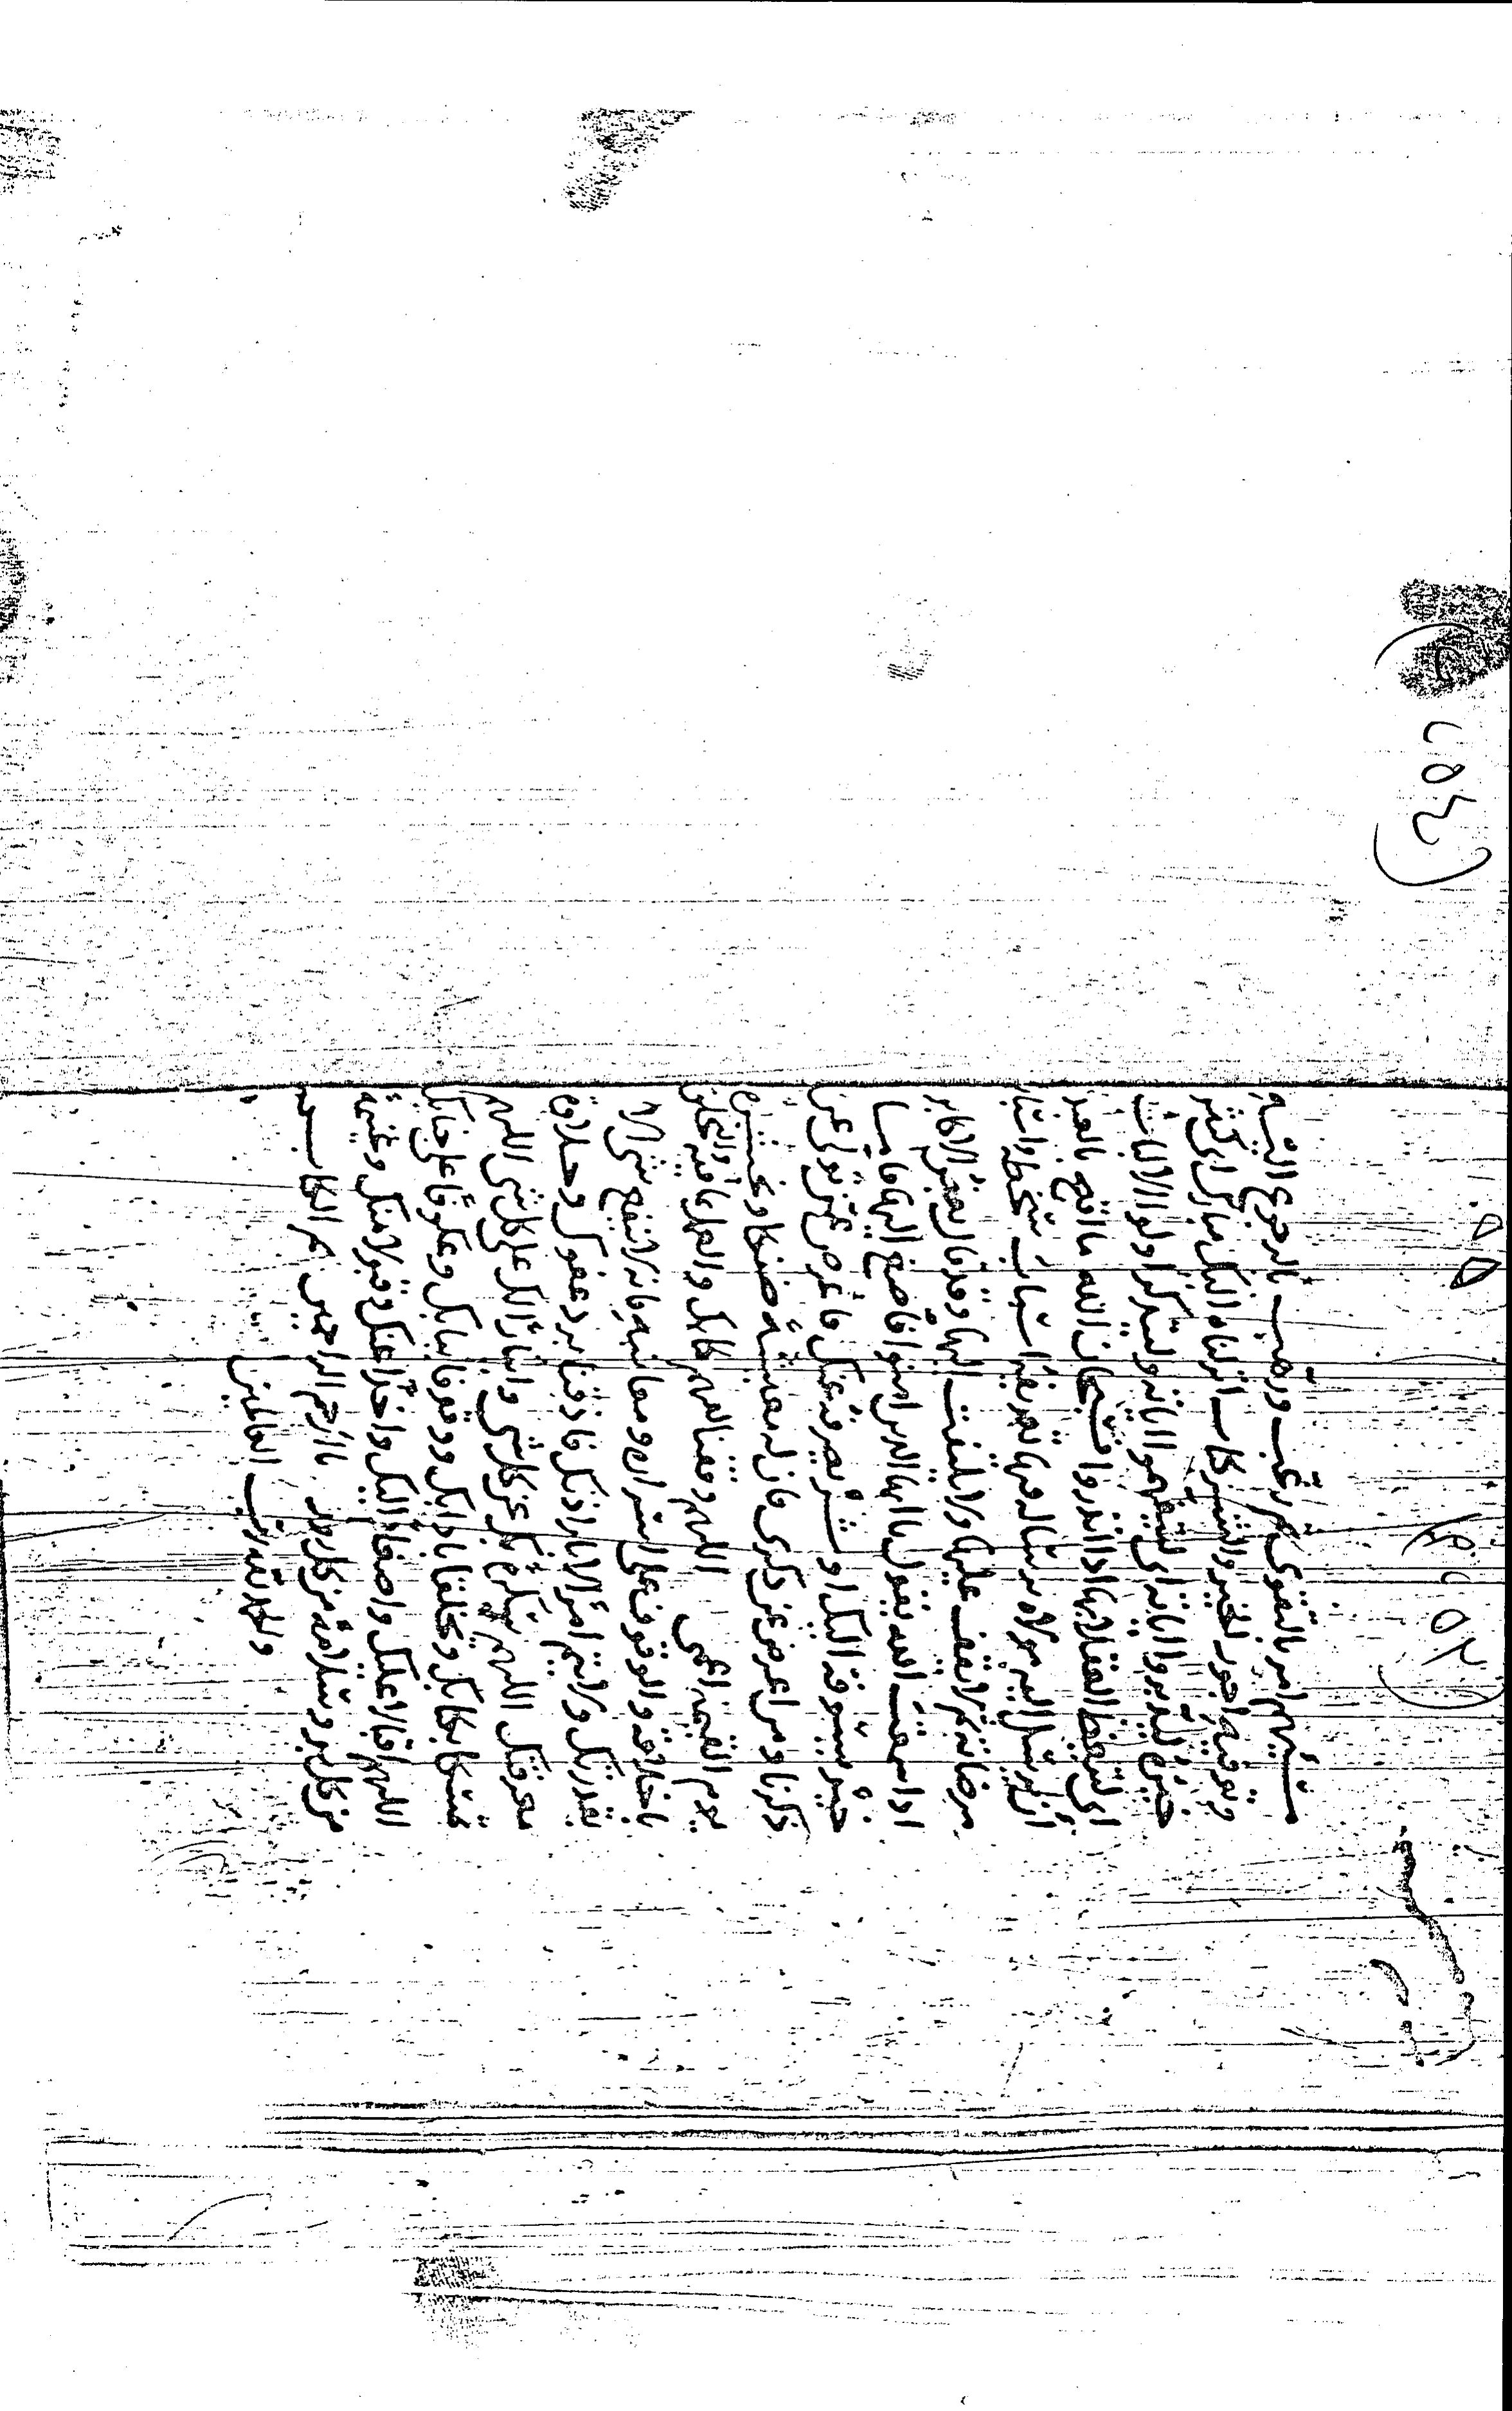 (٢٥٤)
امر بالتقوى ثم رغب ورهب بالرجوع اليه
وتوفية اجور الخير والشر كتاب انزلناه اليك مبارك اى كثير
خيره ليدبروا اياته اى ليتفهموا اياته وليتذكر اولوا الالباب
اى ليتعظ العقلا بها اذا تدبروا فسبحان الله ما اقبح بالعبد
ان يرسل اليه مولاه رسالة فيها تعريف اسباب سخطه واسباب
مرضاته ثم لا يقف عليها ولا يلتفت اليها وقد قال بعض الاكابر
اذا سمعت الله يقول يا ايها الذين امنوا فاصغ اليها فانها
خير يسوقه اليك او شر يصرفه عنك فاعرض عمن تولى عن
ذكرنا ومن اعرض عن ذكرى فان له معيشة ضنكا ونحشره
يوم القيمة اعمى اللهم وفقنا لفهم كتابك والعمل بما فيه والتخلق
باخلاقه والوقوف على اسراره ومعانيه فانه لا ينفتح شى الا
بقدرتك ولا يتم امر الا باذنك فاذقنا برد عفوك وحلاوة
معرفتك اللهم بك عن كل شى وايثارا لك على كل شى اللهم
متعنا بكتابك وخلقنا بادابك بابك على جنابك
اللهم اقبالا عليك واصغاء اليك واخذا عنك وقبولا منك وغنيمة
من كل بر وسلامة من كل يا ارحم الراحمين تم الكتاب بحمد
والحمد لله رب العالمين